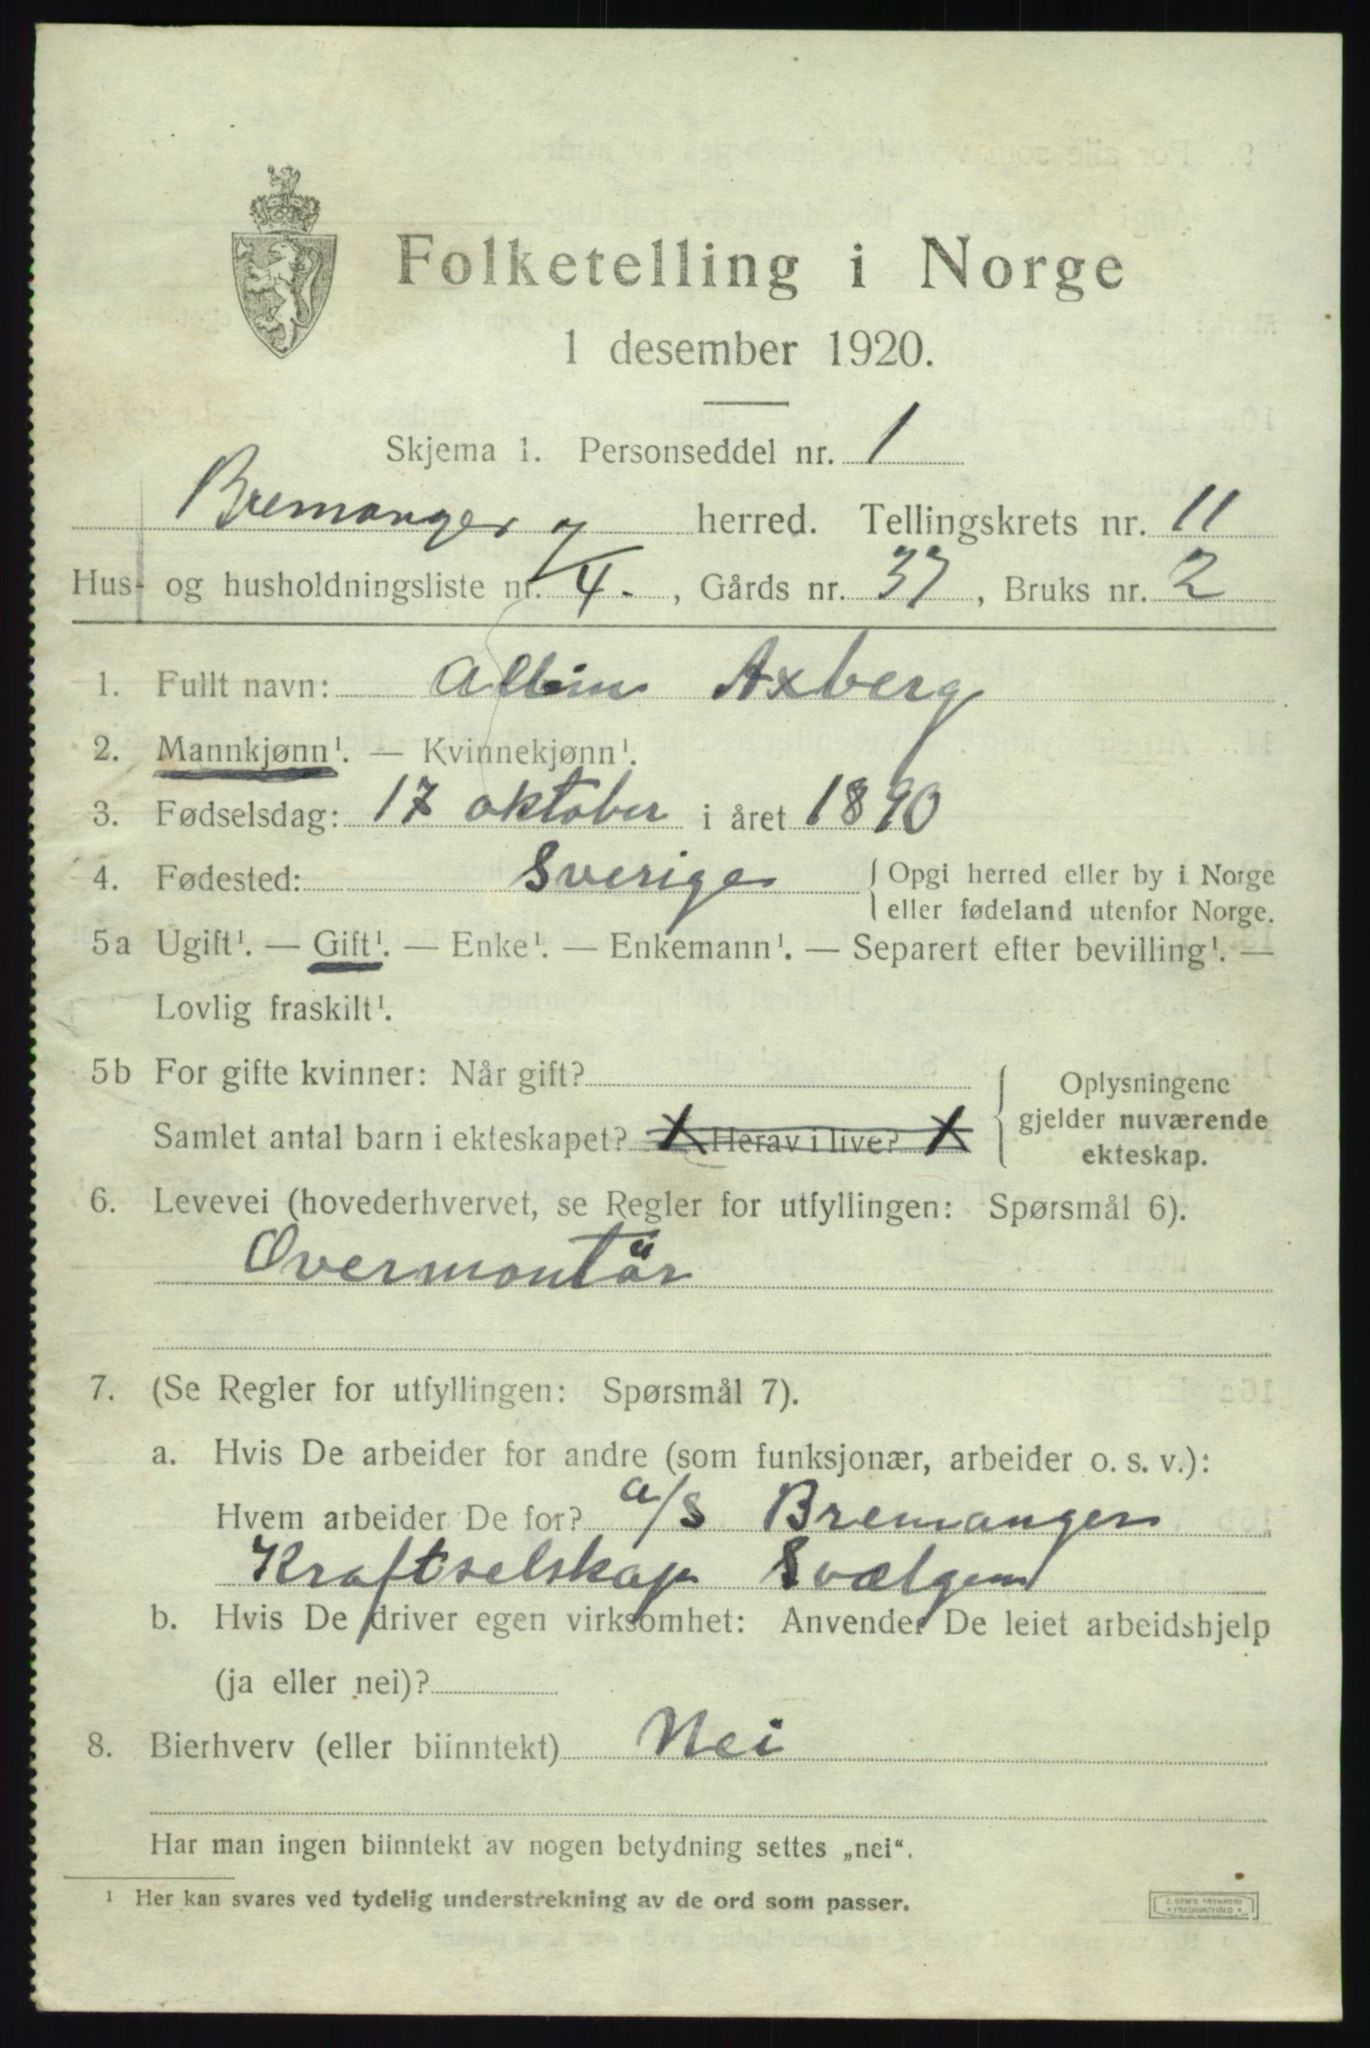 Folketelling i Norge
1 desember 1920.
Skjema 1. Personseddel nr. 1
Bremanger herred. Tellingskrets nr. 11
Hus- og husholdningsliste nr. 7/4. , Gårds nr. 37, Bruks nr. 2
1. Fullt navn: Albin Axberg
2. Mannkjønn¹. — Kvinnekjønn¹.
3. Fødselsdag: 17 oktober i året 1890
4. Fødested: Sverige { Opgi herred eller by i Norge
eller fødeland utenfor Norge.
5a Ugift¹. — Gift¹. — Enke¹. — Enkemann¹. — Separert efter bevilling¹. —
Lovlig fraskilt¹.
5b For gifte kvinner: Når gift?
Samlet antal barn i ekteskapet? Herav i live?
Oplysningene
gjelder nuværende
ekteskap.
6. Levevei (hovederhvervet, se Regler for utfyllingen: Spørsmål 6).
Overmontör
7. (Se Regler for utfyllingen: Spørsmål 7).
a. Hvis De arbeider for andre (som funksjonær, arbeider o. s. v.):
Hvem arbeider De for? a/s Bremanger
Kraftselskap Svælgen
b. Hvis De driver egen virksomhet: Anvender De leiet arbeidshjelp
(ja eller nei)?
8. Bierhverv (eller biinntekt) Nei
Har man ingen biinntekt av nogen betydning settes „nei“.
¹ Her kan svares ved tydelig understrekning av de ord som passer.